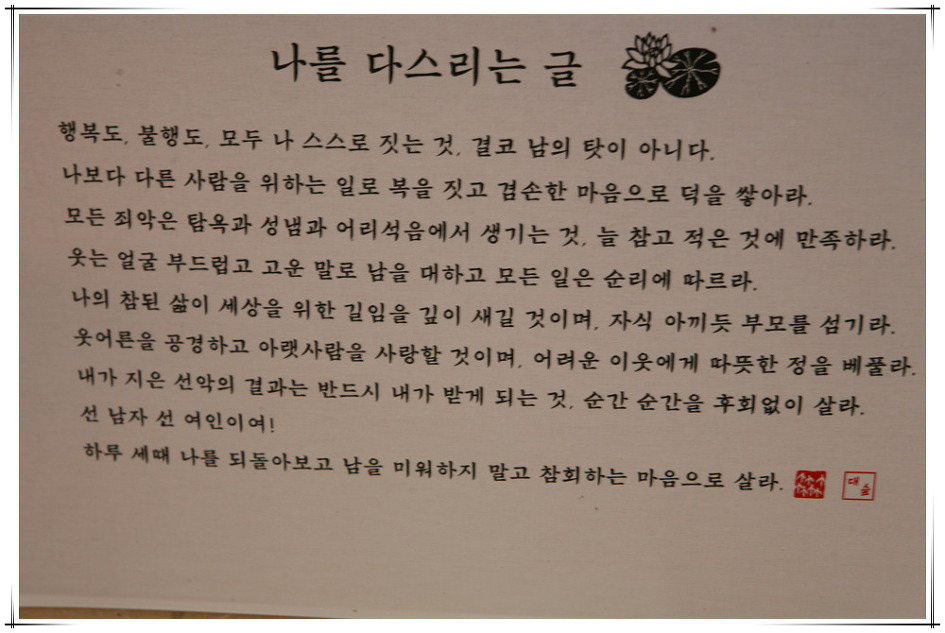 나를 다스리는 글
행복도, 불행도, 모두 나 스스로 짓는 것, 결코 남의 탓이 아니다.
나보다 다른 사람을 위하는 일로 복을 짓고 겸손한 마음으로 덕을 쌓아라.
모든 죄악은 탐욕과 성냄과 어리석음에서 생기는 것, 늘 참고 적은 것에 만족하라.
웃는 얼굴 부드럽고 고운 말로 남을 대하고 모든 일은 순리에 따르라.
나의 참된 삶이 세상을 위한 길임을 깊이 새길 것이며, 자식 아끼듯 부모를 섬기라.
웃어른을 공경하고 아랫사람을 사랑할 것이며, 어려운 이웃에게 따뜻한 정을 베풀라.
내가 지은 선악의 결과는 반드시 내가 받게 되는 것, 순간 순간을 후회없이 살라.
선 남자 선 여인이여!
하루 세때 나를 되돌아보고 남을 미워하지 말고 참회하는 마음으로 살라.
대숲